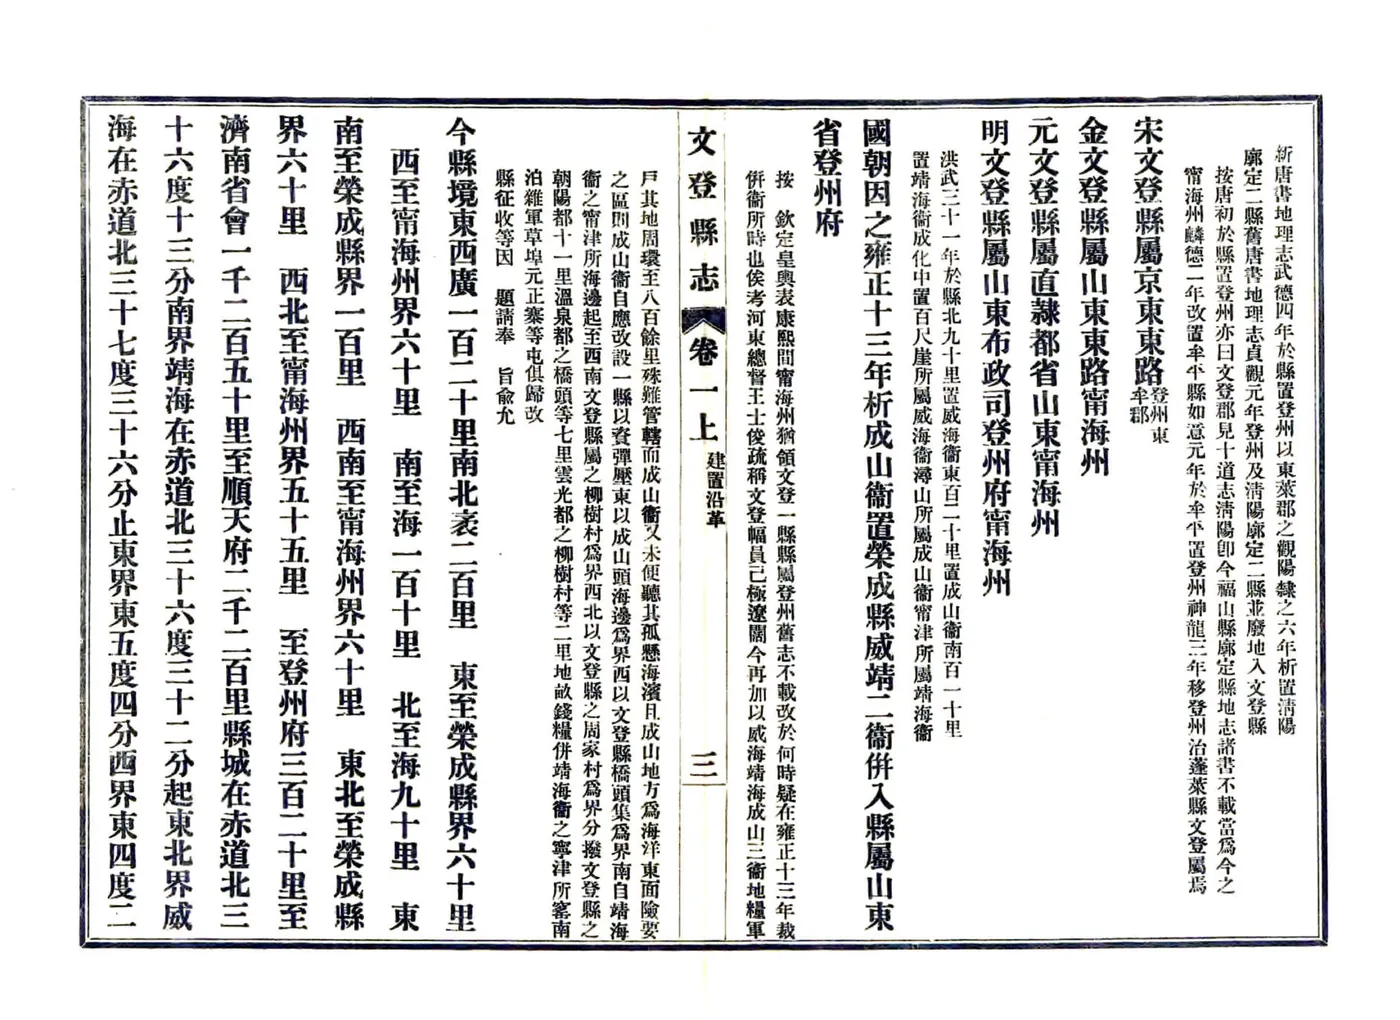 新唐書地理志武德四年於縣置登州以東萊郡之觀陽隸之六年析置清陽
廓定二縣舊唐書地理志貞觀元年登州及清陽廓定二縣並廢地入文登縣
按唐初於縣置登州亦曰文登郡見十道志清陽卽今福山縣廓定縣地志諸書不載當爲今之
甯海州麟德二年改置牟平縣如意元年於牟平置登州神龍三年移登州治蓬萊縣文登屬焉
宋文登縣屬京東東路登州東
牟郡
金文登縣屬山東東路甯海州
元文登縣屬直隸都省山東甯海州
明文登縣屬山東布政司登州府甯海州
洪武三十一年於縣北九十里置威海衞東百二十里置成山衞南百一十里
置靖海衞成化中置百尺崖所屬威海衞潯山所屬成山衞甯津所屬靖海衞
國朝因之雍正十三年析成山衞置榮成縣威靖二衞併入縣屬山東
省登州府
按 欽定皇輿表康熙間甯海州猶領文登一縣縣屬登州舊志不載改於何時疑在雍正十三年裁
併衞所時也俟考河東總督王士俊疏稱文登幅員已極遼闊今再加以威海靖海成山三衞地糧軍
文登縣志
卷一上
建置沿革
三
戶其地周環至八百餘里殊難管轄而成山衞又未便聽其孤懸海濱且成山地方爲海洋東面險要
之區則成山衞自應改設一縣以資彈壓東以成山頭海邊爲界西以文登縣橋頭集爲界南自靖海
衞之甯津所海邊起至西南文登縣屬之柳樹村爲界西北以文登縣之周家村爲界分撥文登縣之
朝陽都十一里溫泉都之橋頭等七里雲光都之柳樹村等二里地畝錢糧併靖海衞之寧津所窰南
泊雜軍草埠元正寨等屯俱歸改
縣征收等因 題請奉 旨俞允
今縣境東西廣一百二十里南北袤二百里 東至榮成縣界六十里
西至甯海州界六十里 南至海一百十里 北至海九十里 東
南至榮成縣界一百里 西南至甯海州界六十里 東北至榮成縣
界六十里 西北至甯海州界五十五里 至登州府三百二十里至
濟南省會一千二百五十里至順天府二千二百里縣城在赤道北三
十六度十三分南界靖海在赤道北三十六度三十二分起東北界威
海在赤道北三十七度三十六分止東界東五度四分西界東四度二